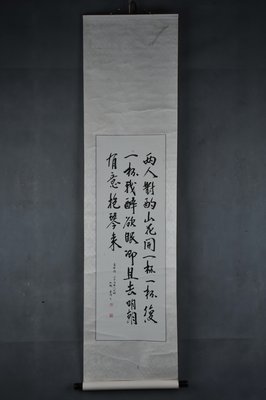 两人對酌山花開一杯一杯復
一杯我醉欲眠卿且去明朝
有意抱琴来